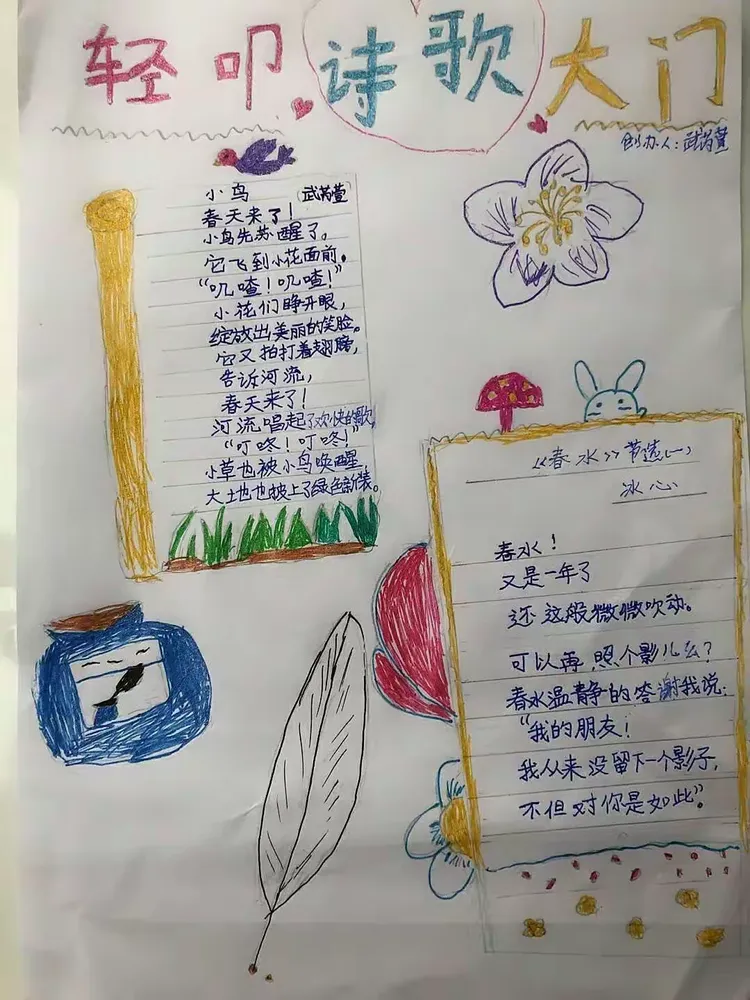 轻叩诗歌大门
创办人：武芮萱
小鸟 (武芮萱)
春天来了！
小鸟先苏醒了。
它飞到小花面前。
“叽喳！叽喳！”
小花们睁开眼，
绽放出美丽的笑脸。
它又拍打着翅膀，
告诉河流，
春天来了！
河流唱起了欢快的歌
“叮咚！叮咚！”
小草也被小鸟唤醒
大地也披上了绿色新装。
《春水》节选(一)
冰心
春水！
又是一年了
还这般微微吹动。
可以再照个影儿么？
春水温静的答谢我说：
“我的朋友！
我从来没留下一个影子，
不但对你是如此”。